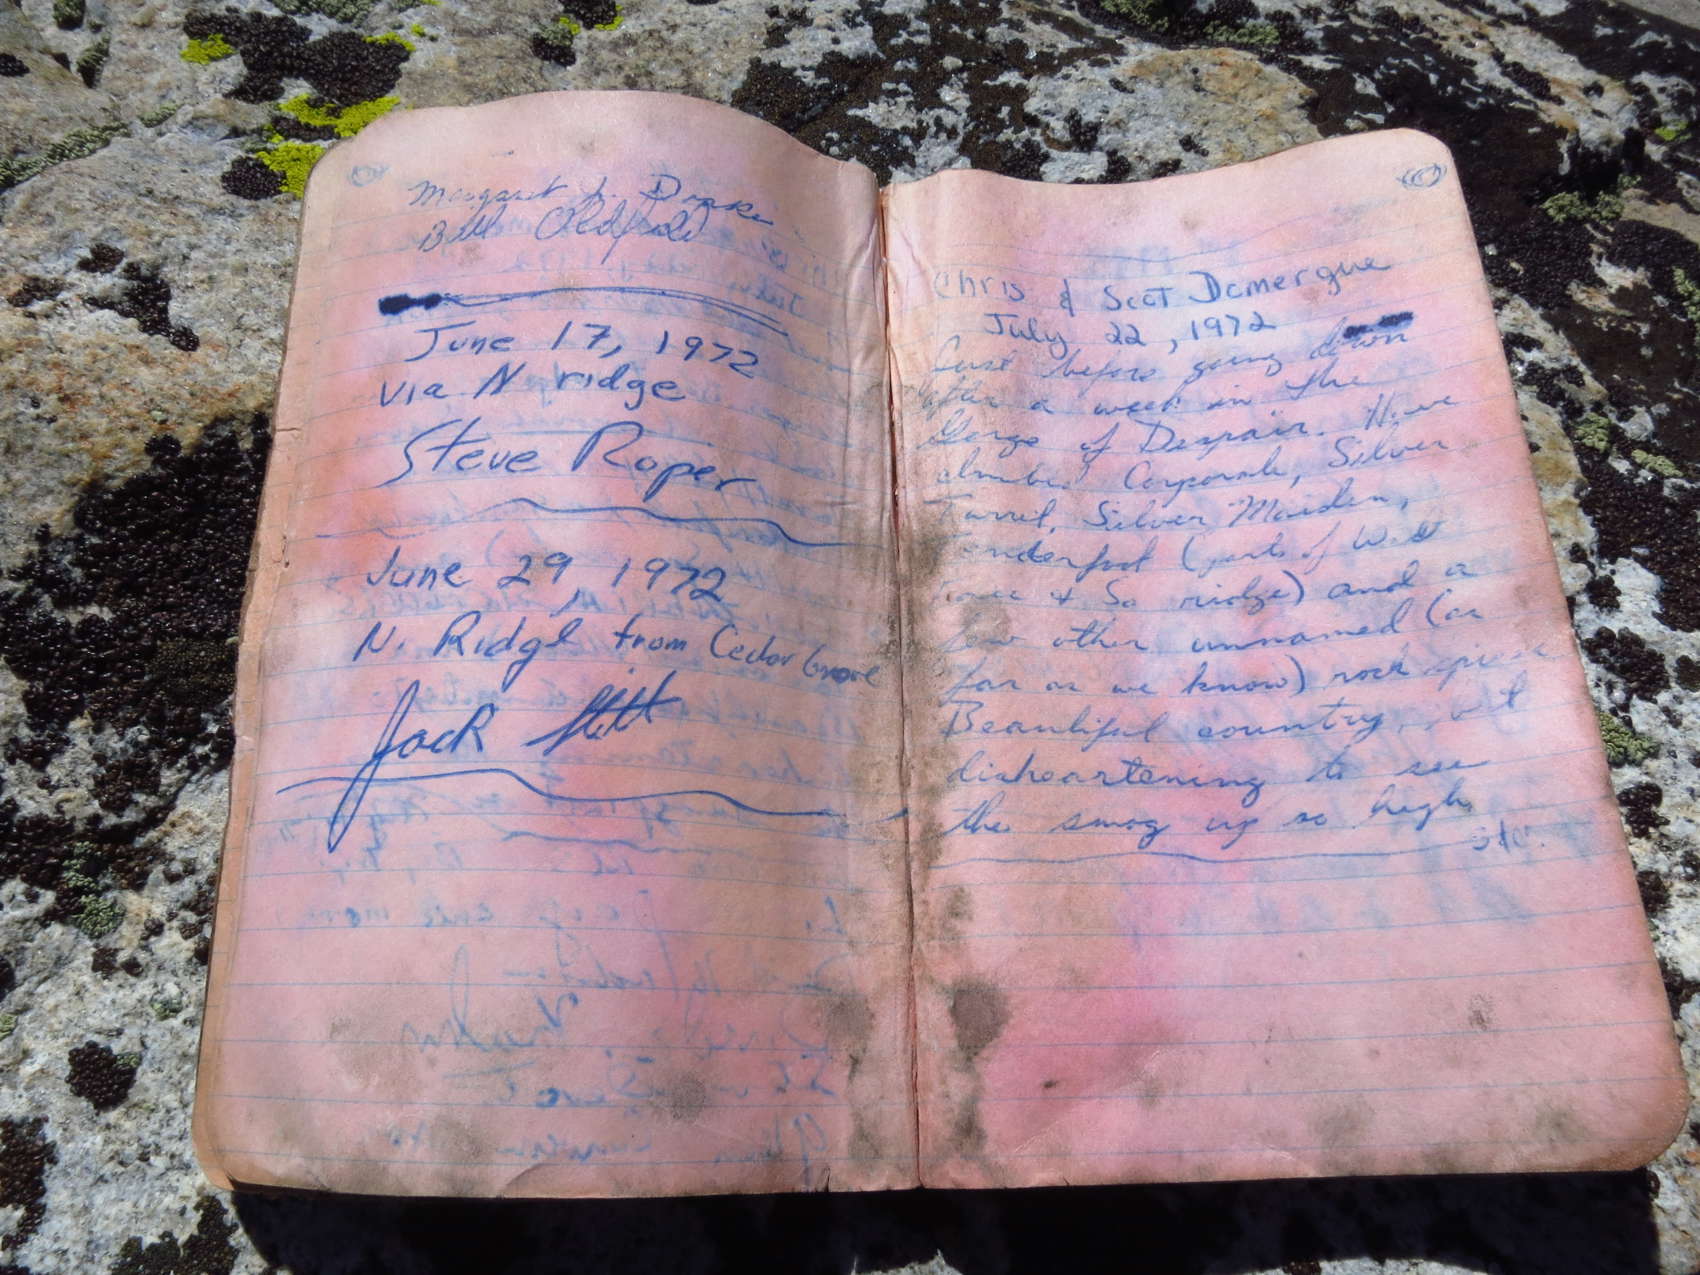 Margaret L. Drake
Bill Oldfield
June 17, 1972
via N ridge
Steve Roper
June 29, 1972
N. Ridge from Cedar Grove
Jack Stitt
Chris & Scot Domergue
July 22, 1972
Just before going down
after a week in the
Gorge of Despair. Have
climbed Corporal, Silver
Turret, Silver Maiden,
Tenderfoot (parts of West
Face & So ridge) and a
few other unnamed (as
far as we know) rock
Beautiful country, but
disheartening to see
the smog up so high
etc.